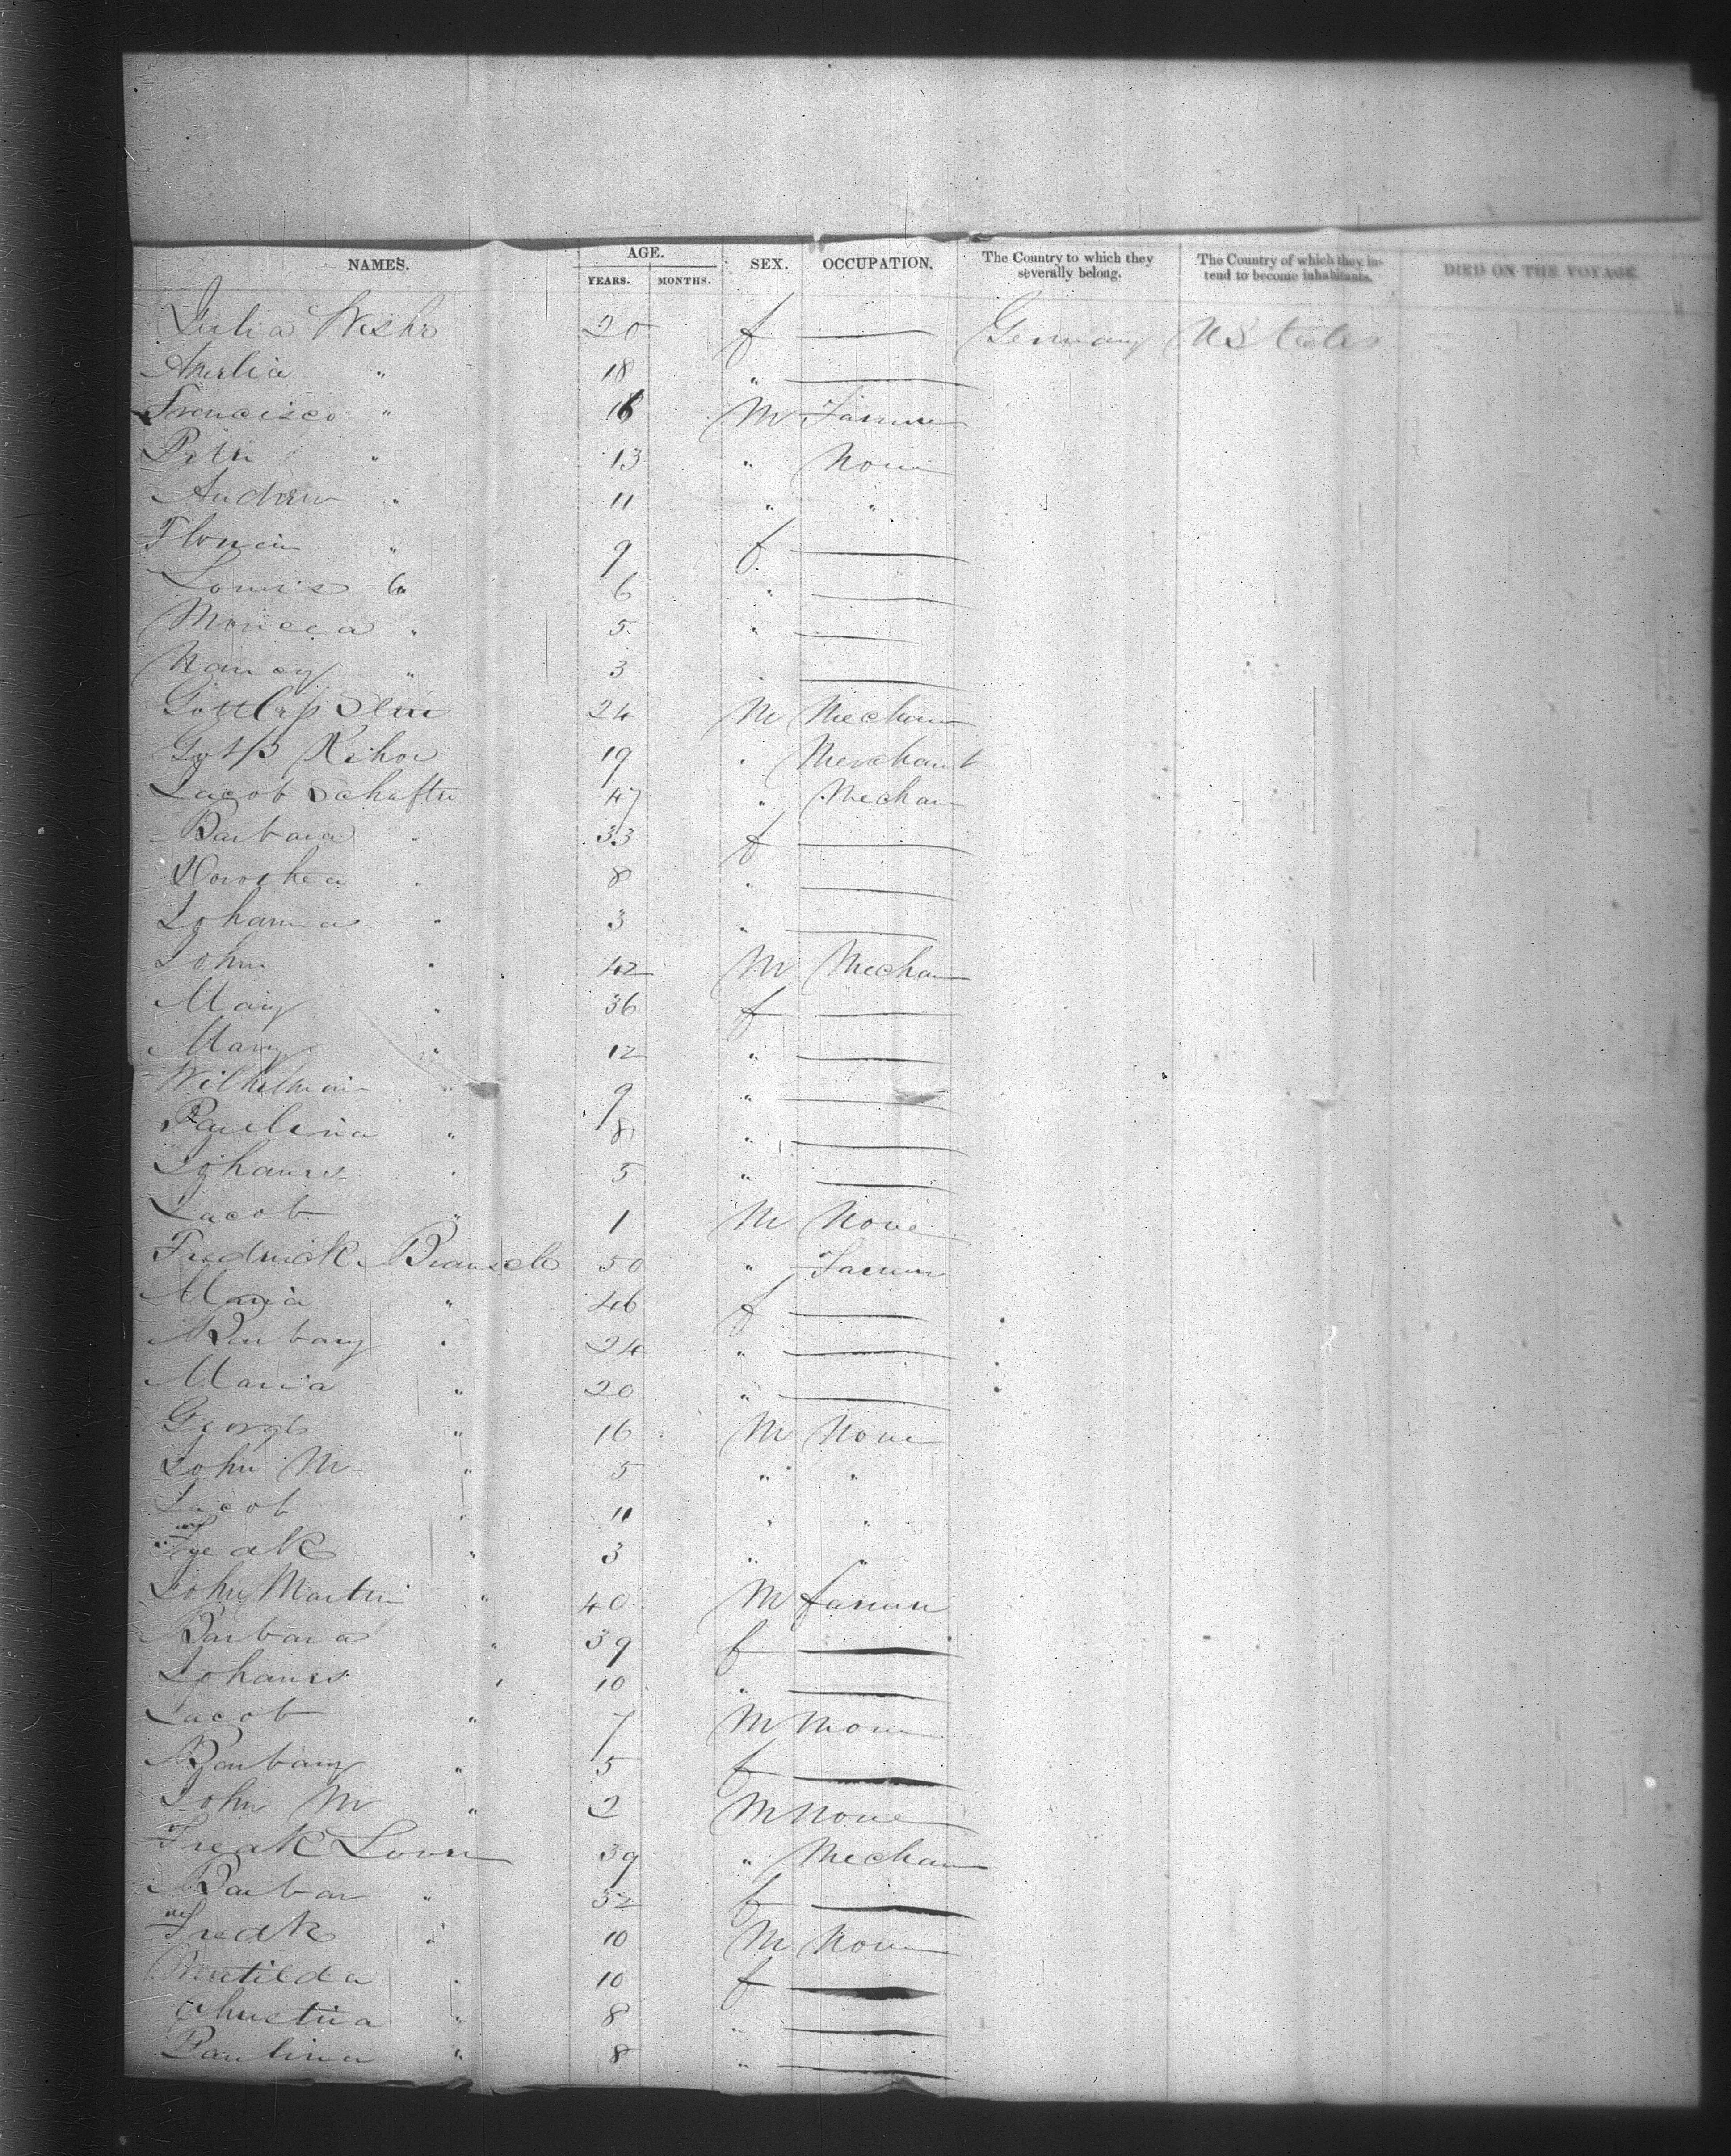 NAMES. AGE. SEX. OCCUPATION. The Country to which they severally belong. The Country of which they intend to become inhabitants. DIED ON THE VOYAGE
YEARS. MONTHS.
Julia 20 f — Germany U States
Amelia " 18 " —
Francisco " 16 M Farmer
Peter " 13 " None
Andrew " 11 " "
" 9 f —
Louis " 6 " —
Monica " 5 " —
Nancy " 3 " —
24 M Mechan
19 " Merchant
Jacob Schafter 47 " Mechan
Barbara " 33 f —
Dorothea " 8 " —
Johanna " 3 " —
John " 42 M Mechan
Mary " 36 f —
Mary " 12 " —
" 9 " —
Paulina " 8 " —
Johannes " 5 " —
Jacob " 1 M None
Fredrick 50 " Farmer
Maria " 46 f —
Barbary " 24 " —
Maria " 20 " —
George " 16 M None
John M " 5 " "
Jacob " 11 " "
" 3 " "
John Martin " 40 M farmer
Barbara " 39 f —
Johannes " 10 " —
Jacob " 7 M None
Barbary " 5 f —
John M " 2 M None
39 " Mechan
Barbar " 32 f —
Fredk " 10 M None
Matilda " 10 f —
Christina " 8 " —
Paulina " 8 " —